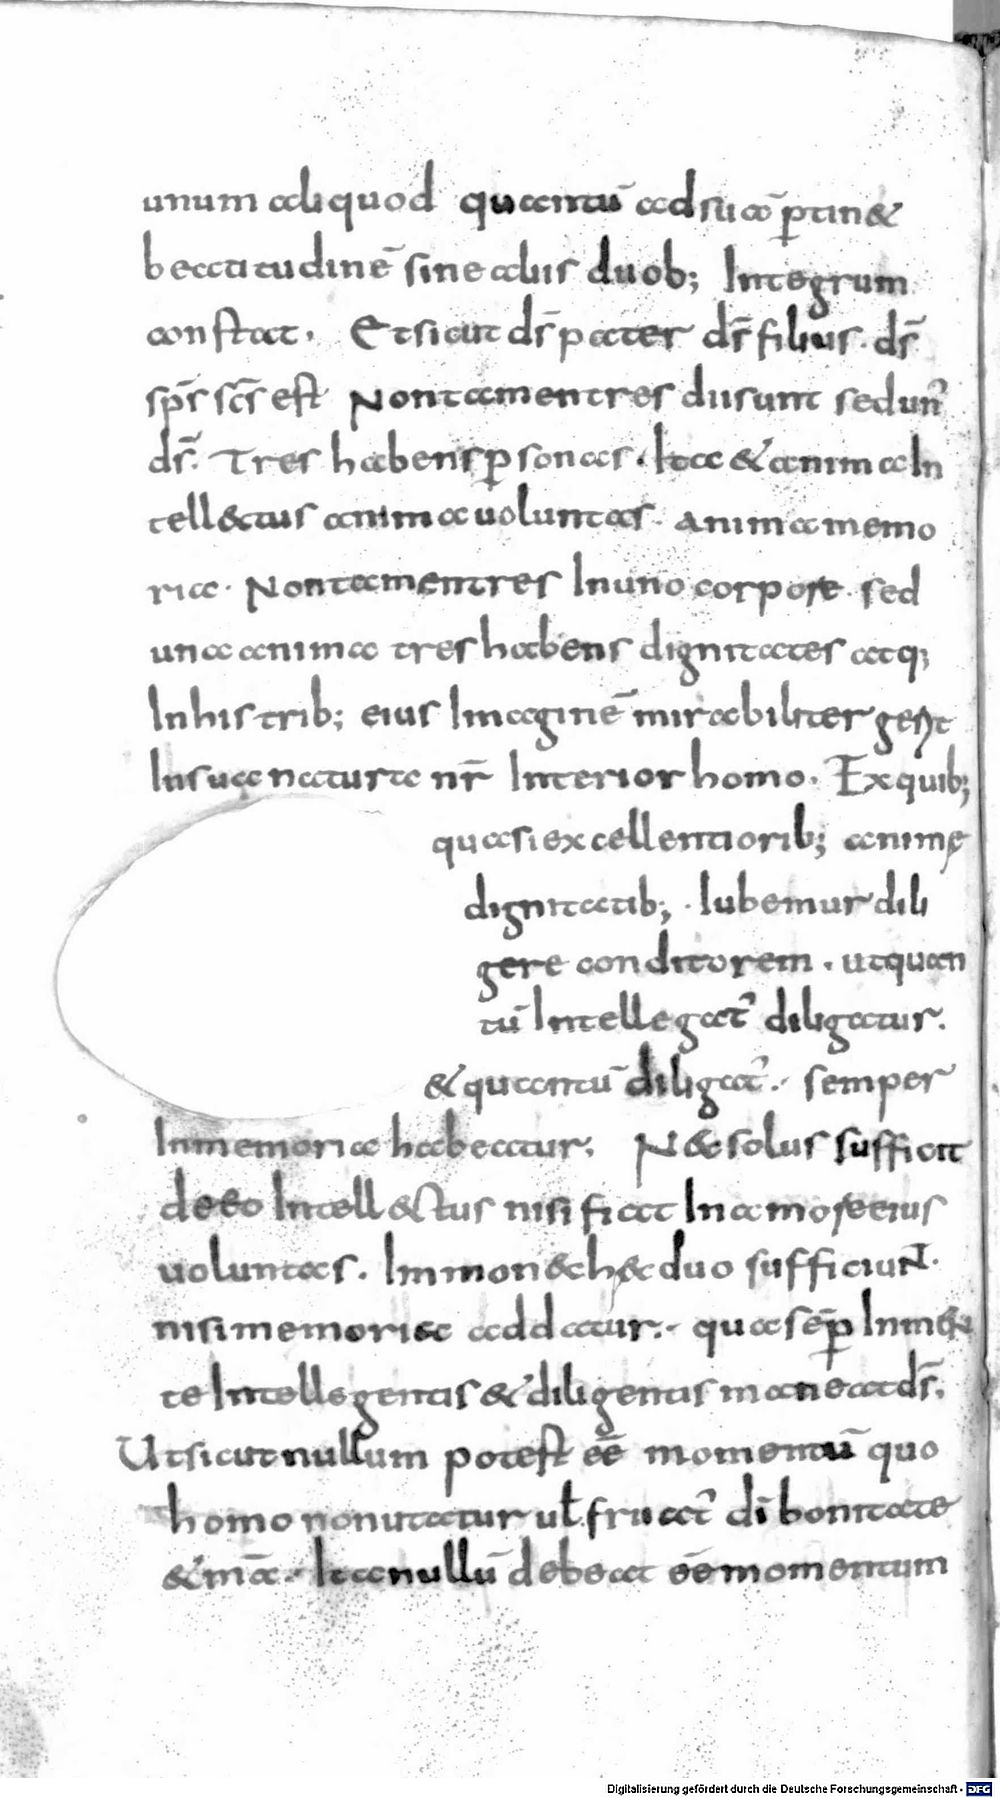 unum aliquod quantū ad sua p̄tin&
beatitudinē sine aliis duob; Integrum
constat. Et sicut dS̄ pater dS̄ filius. dS̄
sps̄ scs̄ est Non tamen tres dii sunt sed un᾽
ds̄. Tres habens ꝑsonas. Ita & anima In
tell&tus anima uoluntas. anima memo
ria. Non tamen tres In uno corpore. sed
una anima tres habens dignitates atq;
In his trib; eius Imaginē mirabiliter ger̄t
In sua natura nr̄ Interior homo. Ex quib;
quasi excellentiorib; animę
dignitatib;. Iubemur dili
gere conditorem. ut quan
tū Intellegat᾽ diligatur.
& quantū diligat᾽. semper
In memoria habeatur; N& solus sufficit
de eo Intell&tus nisi fiat In amore eius
uoluntas. Immo n& hęc duo sufficiuNt.
nisi memoria addatur. qua sēp In men
te Intellegentis & diligentis maneat ds̄.
Ut sicut nullum potest eē momentū quo
homo non utatur uƚ fruat᾽ dī bonitate
& mīa. Ita nullū debeat eē momentum
Digitalisierung gefördert durch die Deutsche Forschungsgemeinschaft - DFG